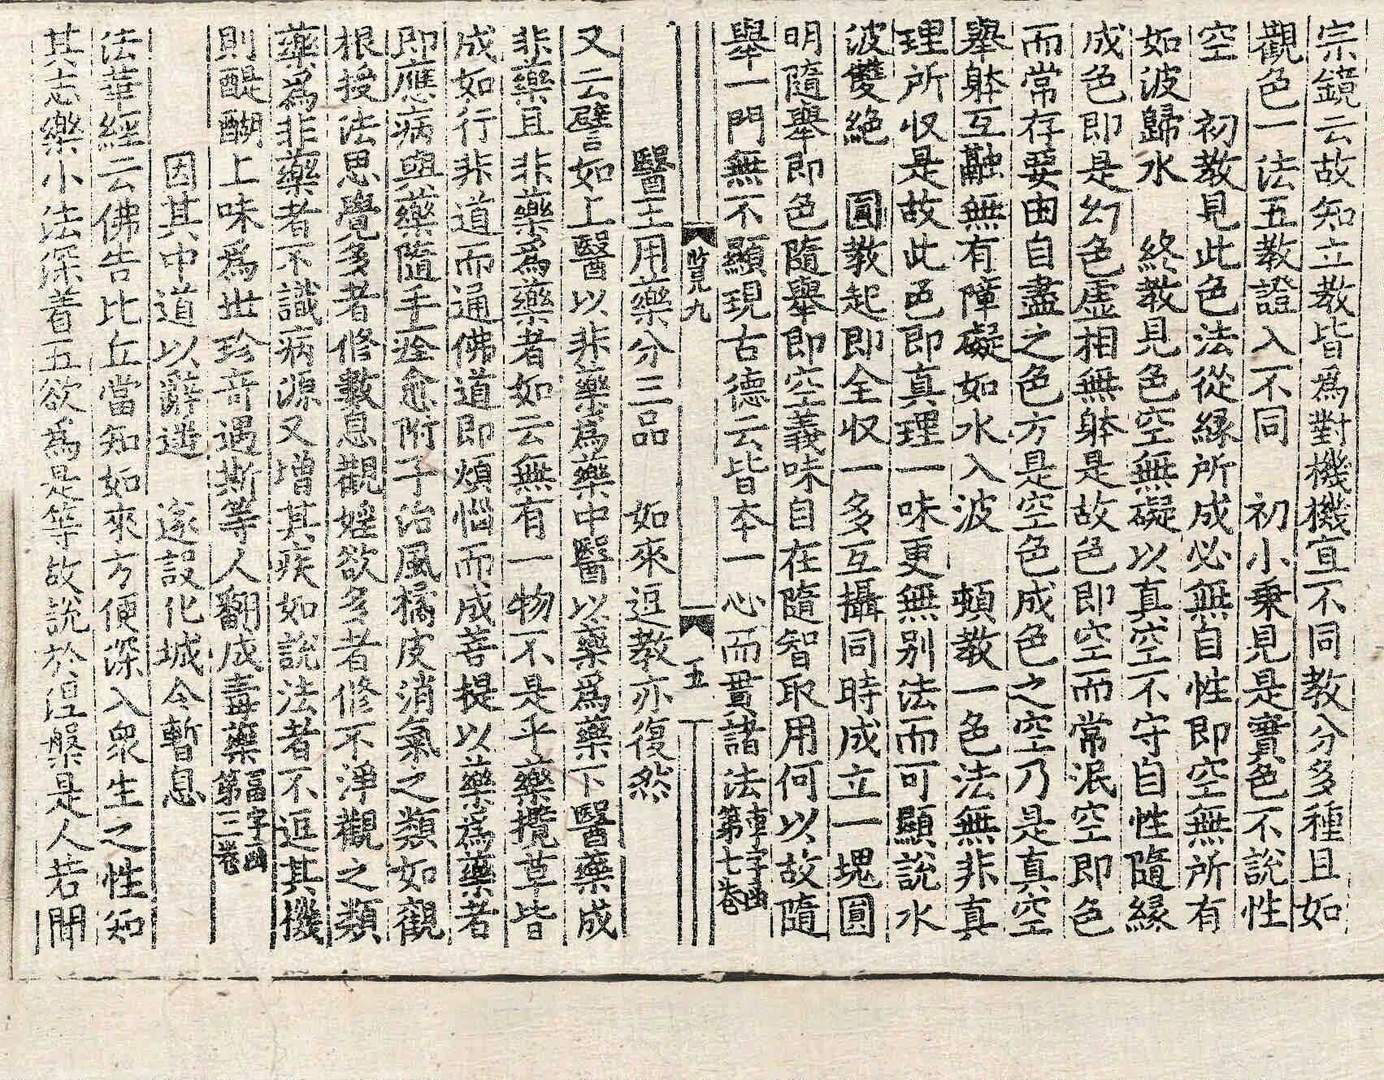 宗鏡云故知立教皆爲對機機宜不同教分多種且如
觀色一法五教證入不同　初小乗見是實色不說性
空　初教見此色法從緣所成必無自性即空無所有
如波歸水　終教見色空無礙以真空不守自性隨緣
成色即是幻色虛相無躰是故色即空而常泯空即色
而常存要由自盡之色方是空色成色之空乃是真空
舉躰互融無有障礙如水入波　頓教一色法無非真
理所収是故此色即真理一味更無别法而可顯說水
波雙絶　圓教起即全収一多互攝同時成立一塊圓
明隨舉即色隨舉即空義味自在隨智取用何以故隨
舉一門無不顯現古德云皆本一心而貫諸法第七卷
覧九　五
醫王用藥分三品　如來逗教亦復然
又云譬如上醫以非藥爲藥中醫以藥爲藥下醫藥成
非藥且非藥爲藥者如云無有一物不是乎藥攬草皆
成如行非道而通佛道即煩惱而成菩提以藥爲藥者
即應病與藥隨手痊愈附子治風橘皮消氣之類如觀
根授法思覺多者修數息觀婬欲多者修不淨觀之類
藥爲非藥者不識病源又增其疾如說法者不逗其機
則醍醐上味爲世珍奇遇斯等人翻成毒藥富字函第三卷
因其中道以辭遣　遂設化城令暫息
法華經云佛告比丘當知如來方便深入衆生之性知
其志樂小法深着五欲爲是等故說於涅槃是人若聞